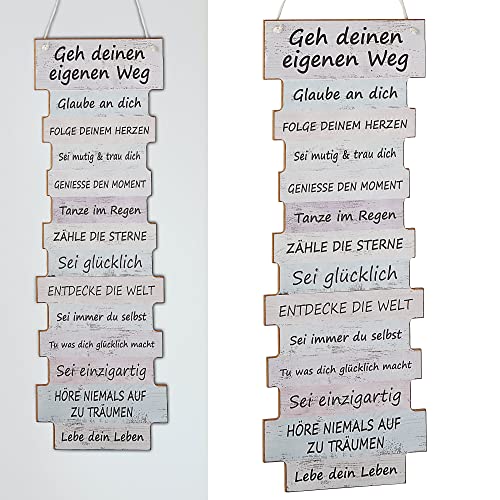 Geh deinen
eigenen Weg
Glaube an dich
FOLGE DEINEM HERZEN
Sei mutig & trau dich
GENIESSE DEN MOMENT
Tanze im Regen
ZÄHLE DIE STERNE
Sei glücklich
ENTDECKE DIE WELT
Sei immer du selbst
Tu was dich glücklich macht
Sei einzigartig
HÖRE NIEMALS AUF
ZU TRÄUMEN
Lebe dein Leben
Geh deinen
eigenen Weg
Glaube an dich
FOLGE DEINEM HERZEN
Sei mutig & trau dich
GENIESSE DEN MOMENT
Tanze im Regen
ZÄHLE DIE STERNE
Sei glücklich
ENTDECKE DIE WELT
Sei immer du selbst
Tu was dich glücklich macht
Sei einzigartig
HÖRE NIEMALS AUF
ZU TRÄUMEN
Lebe dein Leben